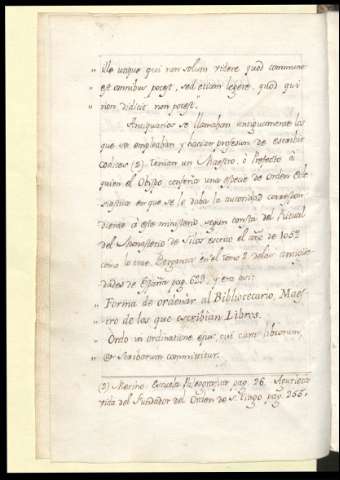 " ille utique qui non solum videre quod commune
" est omnibus potest, sed etiam legere, quod qui
" non didicit, non potest."
Antiquarios se llamaban antiguamente los
que se empleaban y hacian profesion de escribir
Codices (2). tenian un Maestro, ó Prefecto á
quien el Obispo conferia una especie de Orden Ecle
siastico en que se le daba la autoridad correspon
diente á este ministerio, segun consta del Ritual
del Monasterio de Silos escrito el año de 1052
como lo trae Berganza en el tomo 2 de las antigue
dades de España pag. 629, y era asi:
" Forma de ordenar al Bibliotecario, Maes
" tro de los que escribian Libros.
" Ordo in ordinatione ejus, cui cura librorum,
" & Scribarum committitur.
(2) Merino. Escuela Paleographica pag. 26.
vida del Fundador del Orden de S.tiago pag. 255.